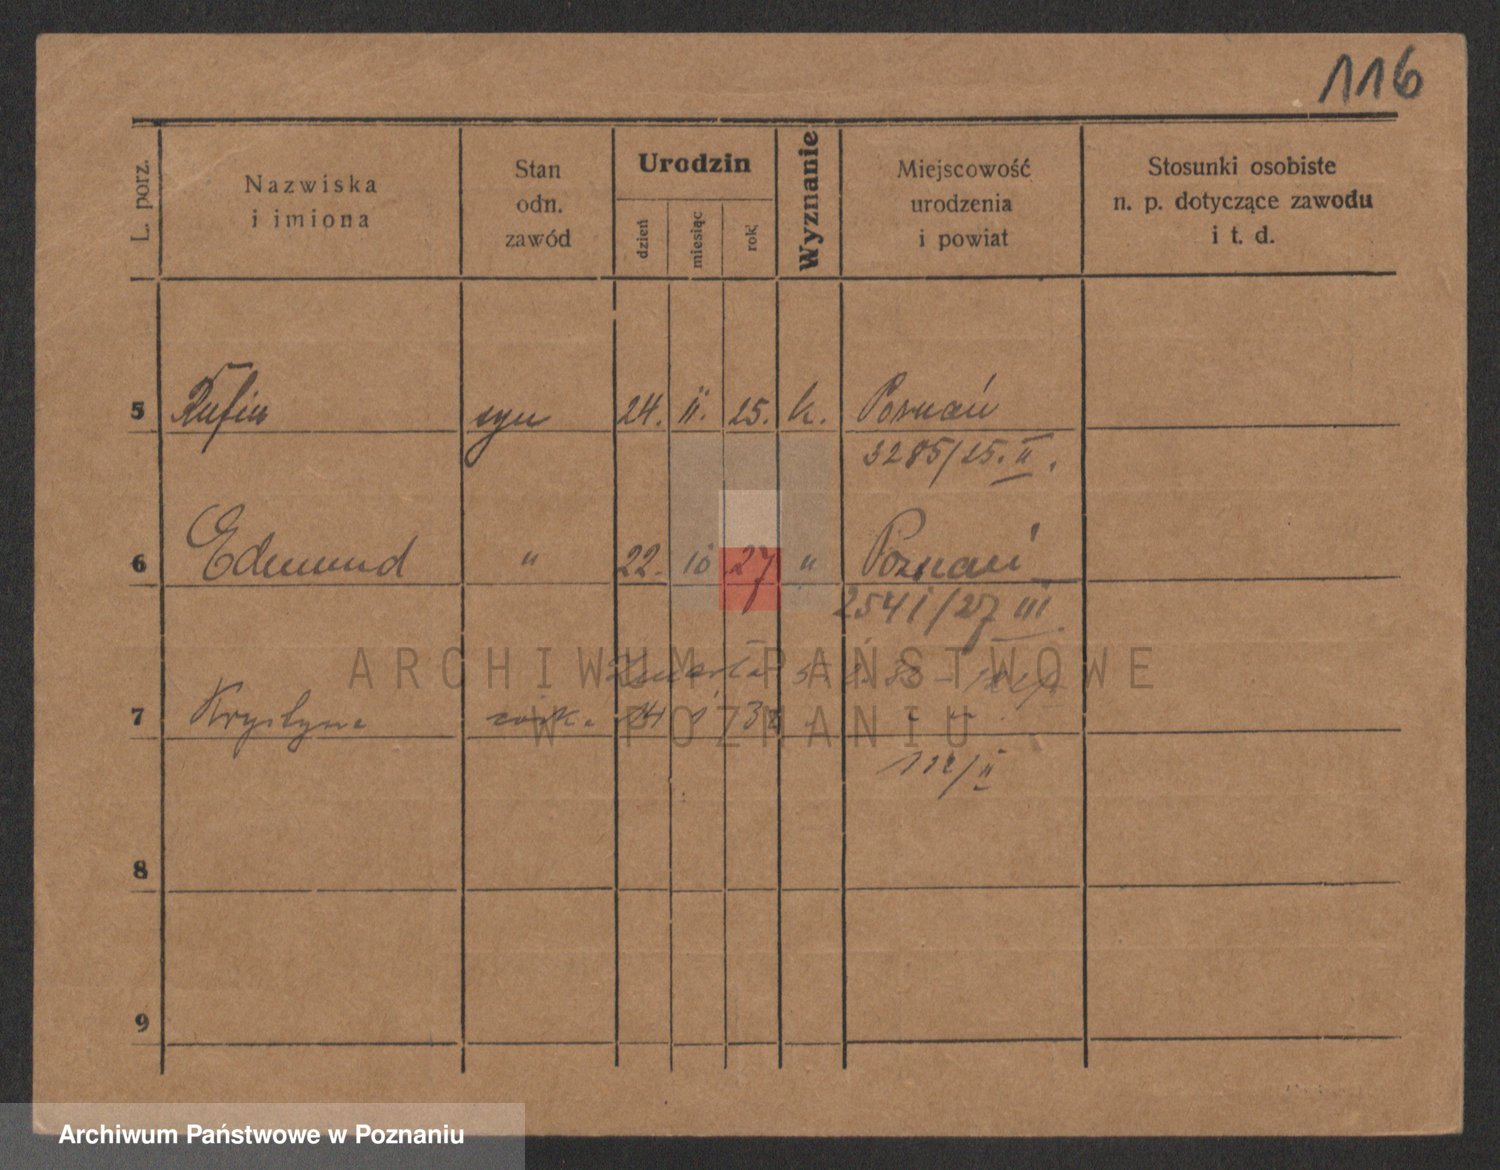 116
L. porz.
Nazwiska
i imiona
Stan
odn.
zawód
Urodzin
dzień
miesiąc
rok
Wyznanie
Miejscowość
urodzenia
i powiat
Stosunki osobiste
n. p. dotyczące zawodu
i t. d.
5 Rufin syn 24. II. 25. k. Poznań
3285/25. II.
6 Edmund " 22. 10 27 " Poznań
2541/27 III
7 Krystyna
/II
8
9
ARCHIWUM PAŃSTWOWE
W POZNANIU
Archiwum Państwowe w Poznaniu